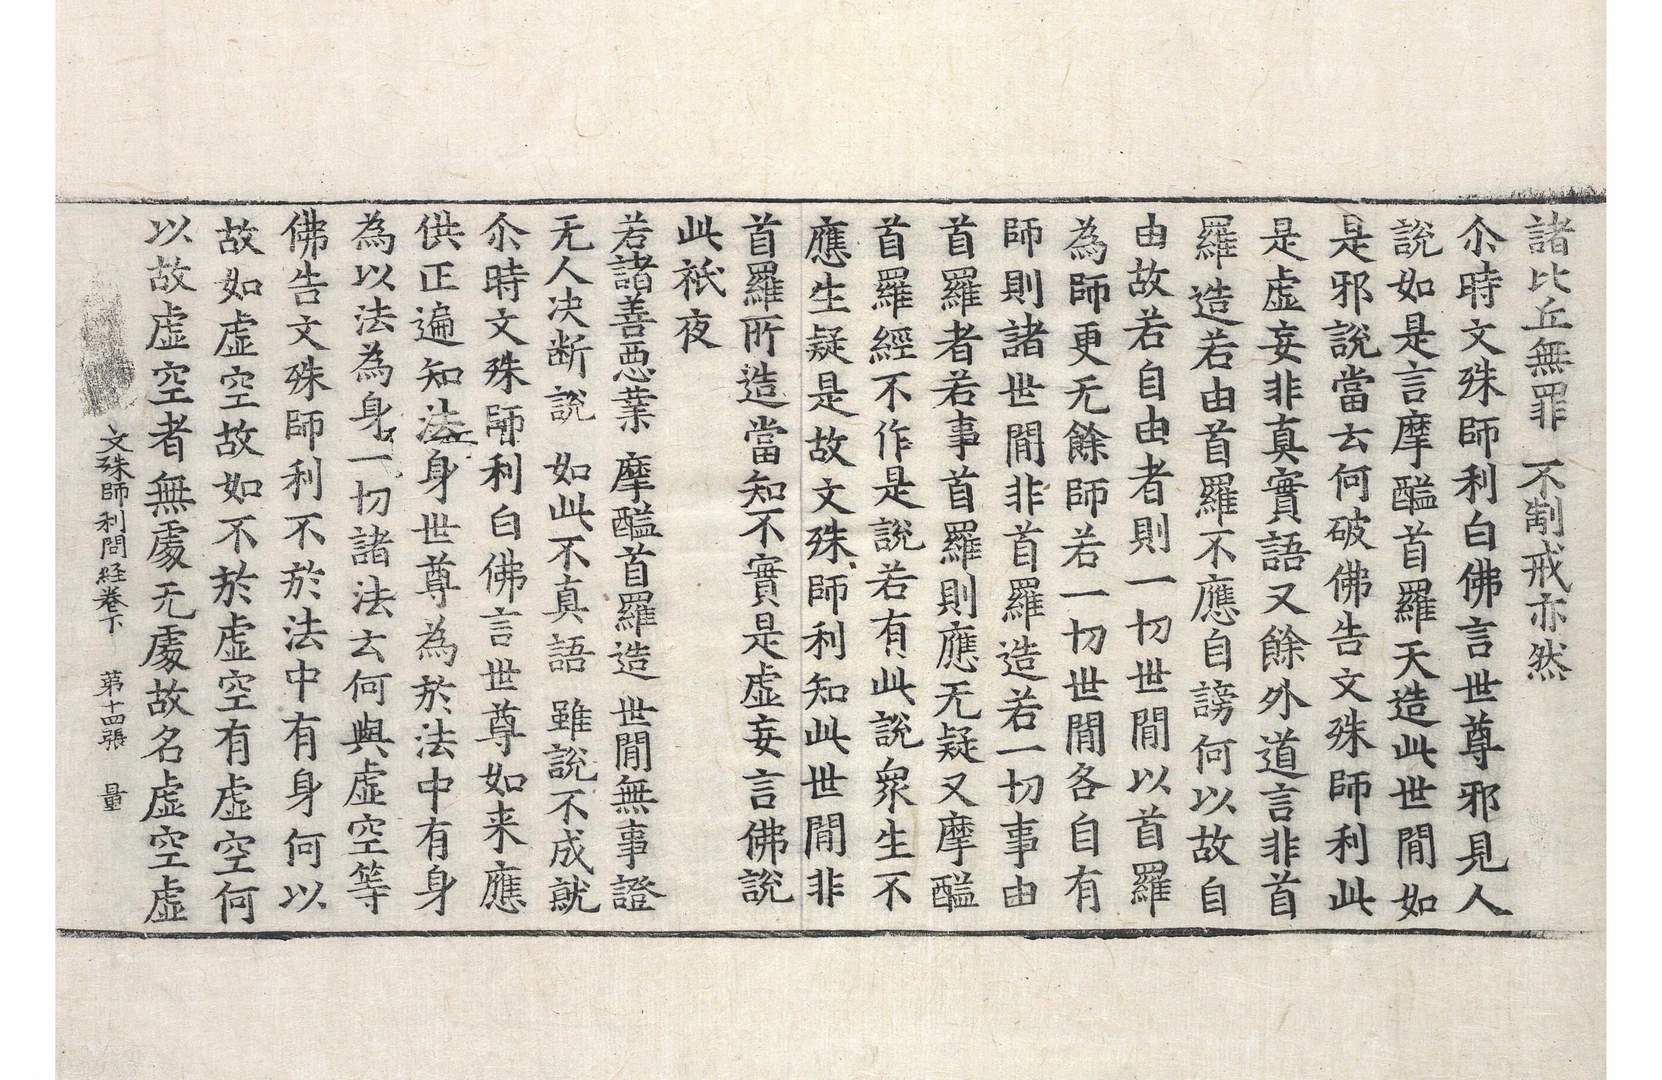 諸比丘無罪 不制戒亦然
尒時文殊師利白佛言世尊邪見人
說如是言摩醯首羅天造此世閒如
是邪說當云何破佛告文殊師利此
是虛妄非真實語又餘外道言非首
羅造若由首羅不應自謗何以故自
由故若自由者則一切世閒以首羅
為師更无餘師若一切世閒各自有
師則諸世閒非首羅造若一切事由
首羅者若事首羅則應无疑又摩醯
首羅經不作是說若有此說衆生不
應生疑是故文殊師利知此世閒非
首羅所造當知不實是虛妄言佛說
此祇夜
若諸善惡業 摩醯首羅造 世閒無事證
无人決断說 如此不真語 雖說不成就
尒時文殊師利白佛言世尊如来應
供正遍知法身世尊為於法中有身
為以法為身一切諸法云何與虛空等
佛告文殊師利不於法中有身何以
故如虛空故如不於虛空有虛空何
以故虛空者無處无處故名虛空虛
文殊師利問経卷下 第十四張 量